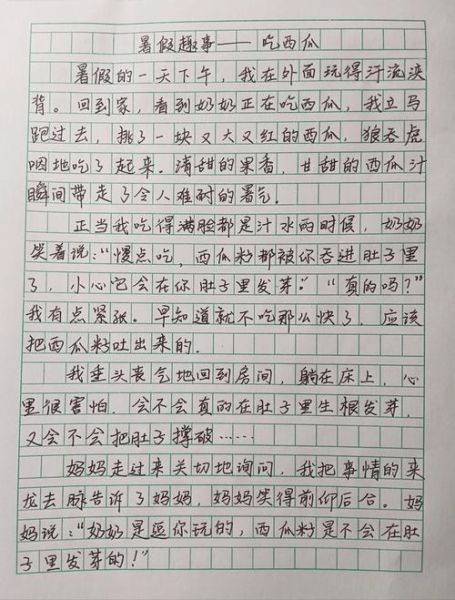 暑假趣事——吃西瓜
暑假的一天下午，我在外面玩得汗流浃
背。回到家，看到奶奶正在吃西瓜，我立马
跑过去，挑了一块又大又红的西瓜，狼吞虎
咽地吃了起来。清甜的果香，甘甜的西瓜汁
瞬间带走了令人难耐的暑气。
正当我吃得满脸都是汁水的时候，奶奶
笑着说：“慢点吃，西瓜籽都被你吞进肚子里
了，小心它会在你肚子里发芽。”“真的吗？”
我有点紧张。早知道就不吃那么快了，应该
把西瓜籽吐出来的.
我垂头丧气地回到房间，躺在床上，心
里很害怕，会不会真的在肚子里生根发芽，
又会不会把肚子撑破……
妈妈走过来关切地询问，我把事情的来
龙去脉告诉了妈妈，妈妈笑得前仰后合。妈
妈说：“奶奶是逗你玩的，西瓜籽是不会在肚
子里发芽的！”